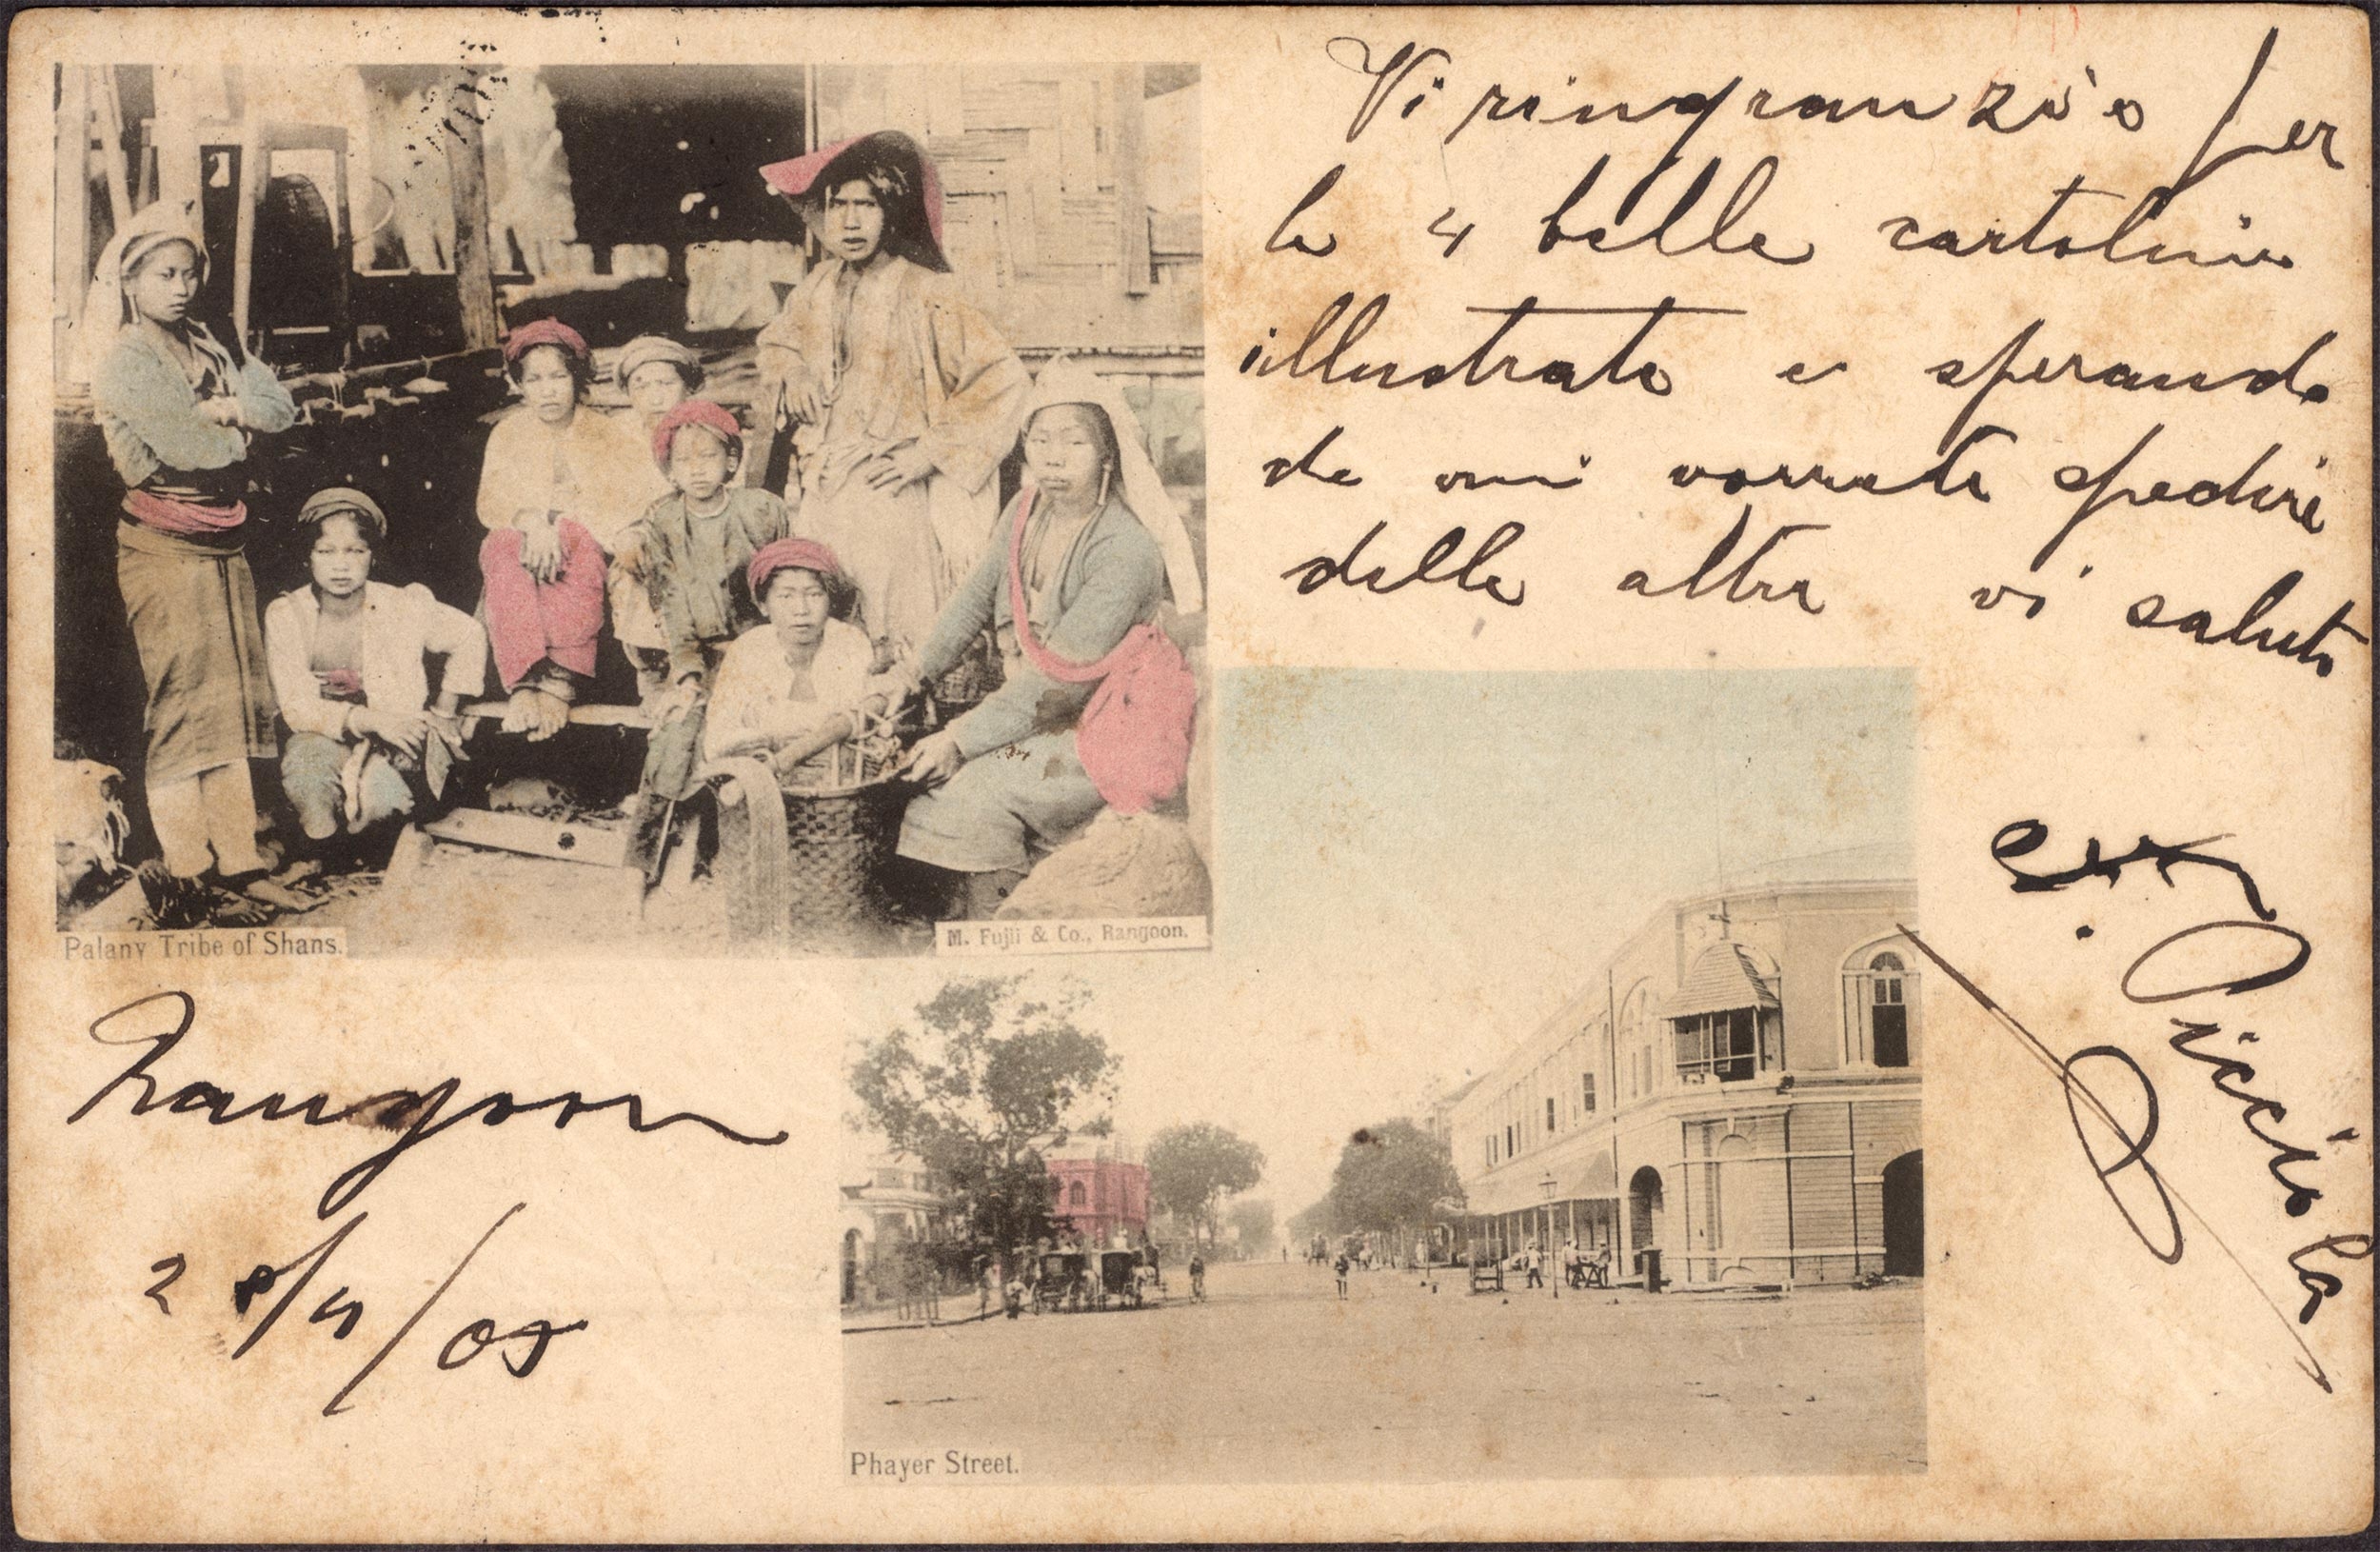 Vi ringranzio per
le 4 belle cartoline
illustrate e sperando
che mi vorrete spedire
delle altre vi saluto
Picciola
Palany Tribe of Shans.
M. Fujii & Co., Rangoon.
Rangoon
28/4/05
Phayer Street.